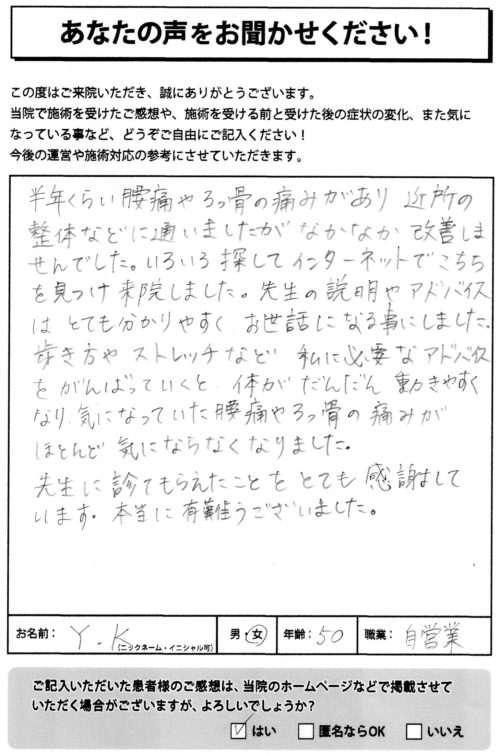 あなたの声をお聞かせください！
この度はご来院いただき、誠にありがとうございます。
当院で施術を受けたご感想や、施術を受ける前と受けた後の症状の変化、また気に
なっている事など、どうぞご自由にご記入ください！
今後の運営や施術対応の参考にさせていただきます。
半年くらい腰痛やろっ骨の痛みがあり 近所の
整体などに通いましたが なかなか 改善しま
せんでした。いろいろ 探して インターネットでこちら
を見つけ 来院しました。先生の説明や アドバイス
は とても分かりやすく お世話になる事にしました。
歩き方や ストレッチなど 私に必要なアドバイス
を がんばっていくと 体が だんだん 動きやすく
なり、気になっていた腰痛やろっ骨の 痛みが
ほとんど 気にならなくなりました。
先生に診てもらえたことを とても 感謝して
います。本当に有難うございました。
お名前： Y.K (ニックネーム・イニシャル可) 男・女 年齢：50 職業： 自営業
ご記入いただいた患者様のご感想は、当院のホームページなどで掲載させて
いただく場合がございますが、よろしいでしょうか？
はい 匿名ならOK いいえ